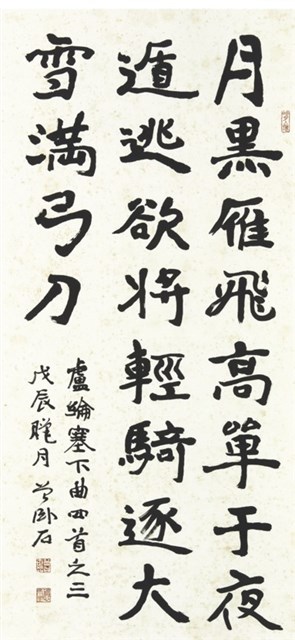 月黑雁飛高單于夜
遁逃欲將輕騎逐大
雪滿弓刀
盧綸塞下曲四首之三
戊辰臘月曾臥石